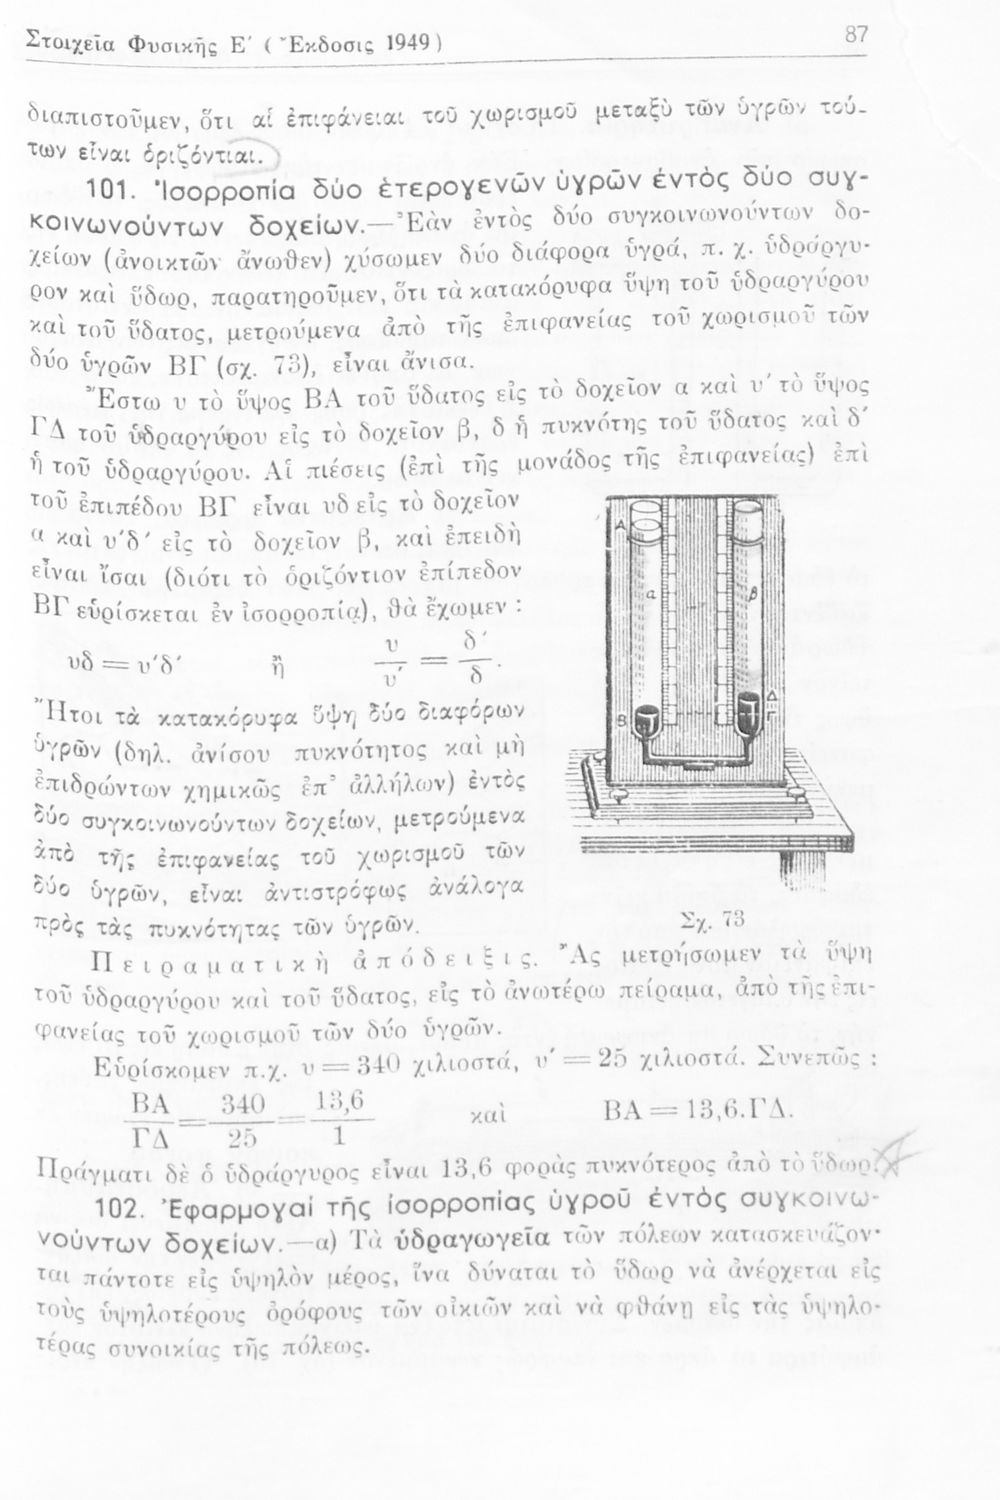 Στοιχεῖα Φυσικῆς Ε΄ ( Ἔκδοσις 1949 )
87
διαπιστοῦμεν, ὅτι αἱ ἐπιφάνειαι τοῦ χωρισμοῦ μεταξὺ τῶν ὑγρῶν τού-
των εἶναι ὁριζόντιαι.
101. Ἰσορροπία δύο ἑτερογενῶν ὑγρῶν ἐντὸς δύο συγ-
κοινωνούντων δοχείων.—Ἐὰν ἐντὸς δύο συγκοινωνούντων δο-
χείων (ἀνοικτῶν ἄνωθεν) χύσωμεν δύο διάφορα ὑγρά, π. χ. ὑδράργυ-
ρον καὶ ὕδωρ, παρατηροῦμεν, ὅτι τὰ κατακόρυφα ὕψη τοῦ ὑδραργύρου
καὶ τοῦ ὕδατος, μετρούμενα ἀπὸ τῆς ἐπιφανείας τοῦ χωρισμοῦ τῶν
δύο ὑγρῶν ΒΓ (σχ. 73), εἶναι ἄνισα.
Ἔστω υ τὸ ὕψος ΒΑ τοῦ ὕδατος εἰς τὸ δοχεῖον α καὶ υ΄ τὸ ὕψος
ΓΔ τοῦ ὑδραργύρου εἰς τὸ δοχεῖον β, δ ἡ πυκνότης τοῦ ὕδατος καὶ δ΄
ἡ τοῦ ὑδραργύρου. Αἱ πιέσεις (ἐπὶ τῆς μονάδος τῆς ἐπιφανείας) ἐπὶ
τοῦ ἐπιπέδου ΒΓ εἶναι υδ εἰς τὸ δοχεῖον
α καὶ υ΄δ΄ εἰς τὸ δοχεῖον β, καὶ ἐπειδὴ
εἶναι ἴσαι (διότι τὸ ὁριζόντιον ἐπίπεδον
ΒΓ εὑρίσκεται ἐν ἰσορροπίᾳ), θὰ ἔχωμεν :
υδ = υ΄δ΄ ἢ υ/υ΄ = δ΄/δ.
Ἤτοι τὰ κατακόρυφα ὕψη δύο διαφόρων
ὑγρῶν (δηλ. ἀνίσου πυκνότητος καὶ μὴ
ἐπιδρώντων χημικῶς ἐπ᾿ ἀλλήλων) ἐντὸς
δύο συγκοινωνούντων δοχείων, μετρούμενα
ἀπὸ τῆς ἐπιφανείας τοῦ χωρισμοῦ τῶν
δύο ὑγρῶν, εἶναι ἀντιστρόφως ἀνάλογα
πρὸς τὰς πυκνότητας τῶν ὑγρῶν.
Α
α
β
Β
Δ
Γ
Σχ. 73
Πειραματικὴ ἀπόδειξις. Ἂς μετρήσωμεν τὰ ὕψη
τοῦ ὑδραργύρου καὶ τοῦ ὕδατος, εἰς τὸ ἀνωτέρω πείραμα, ἀπὸ τῆς ἐπι-
φανείας τοῦ χωρισμοῦ τῶν δύο ὑγρῶν.
Εὑρίσκομεν π.χ. υ = 340 χιλιοστά, υ΄ = 25 χιλιοστά. Συνεπῶς :
ΒΑ/ΓΔ = 340/25 = 13,6/1 καὶ ΒΑ = 13,6.ΓΔ.
Πράγματι δὲ ὁ ὑδράργυρος εἶναι 13,6 φορὰς πυκνότερος ἀπὸ τὸ ὕδωρ.
102. Ἐφαρμογαί τῆς ἰσορροπίας ὑγροῦ ἐντὸς συγκοινω-
νούντων δοχείων.—α) Τὰ ὑδραγωγεῖα τῶν πόλεων κατασκευάζον-
ται πάντοτε εἰς ὑψηλὸν μέρος, ἵνα δύναται τὸ ὕδωρ νὰ ἀνέρχεται εἰς
τοὺς ὑψηλοτέρους ὀρόφους τῶν οἰκιῶν καὶ νὰ φθάνῃ εἰς τὰς ὑψηλο-
τέρας συνοικίας τῆς πόλεως.